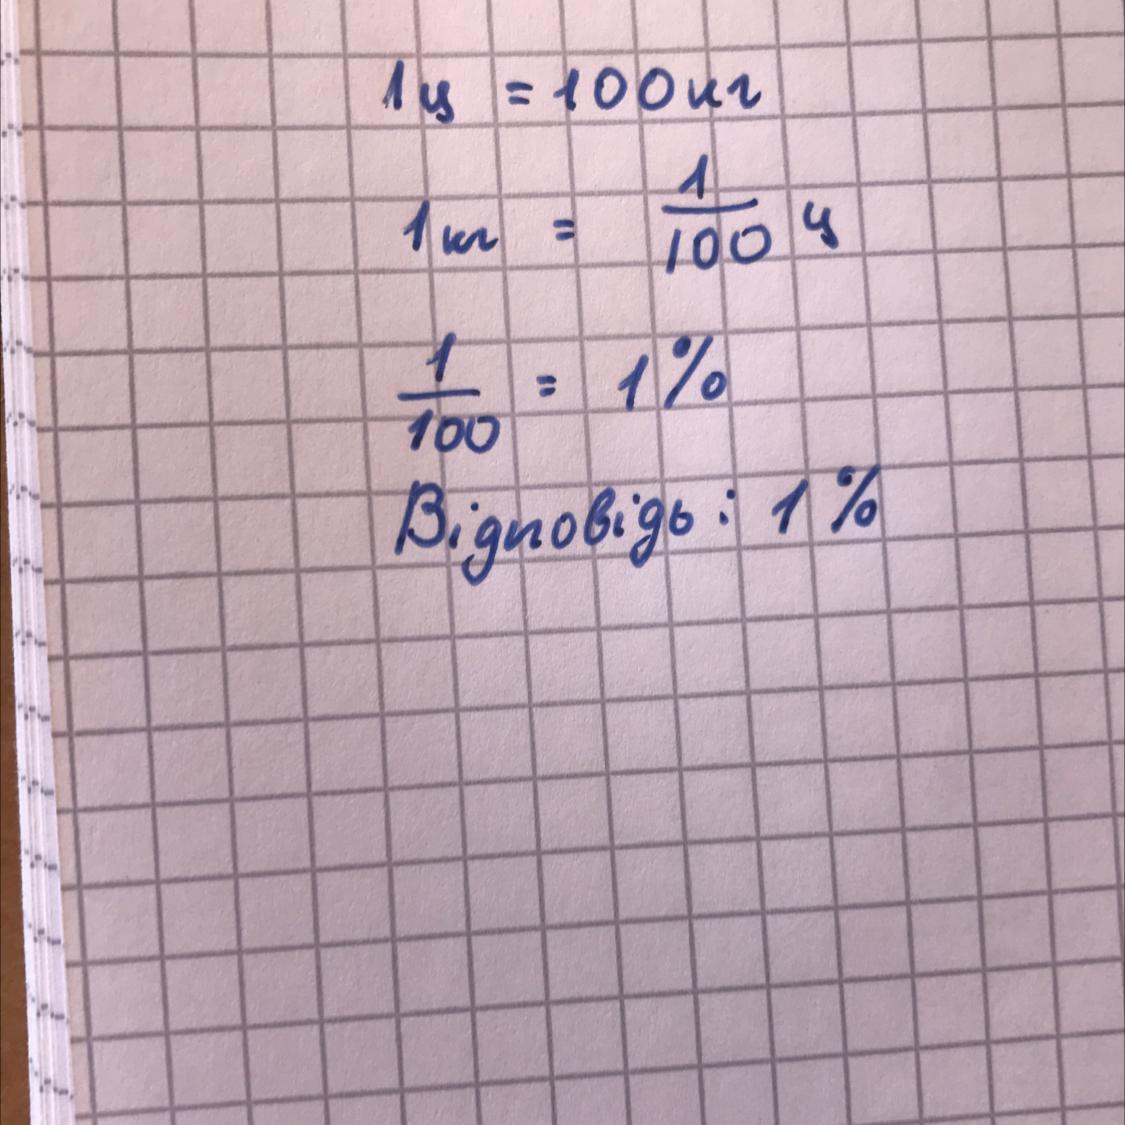 1ц = 100кг
1кг = 1/100 ц
1/100 = 1%
Відповідь: 1%